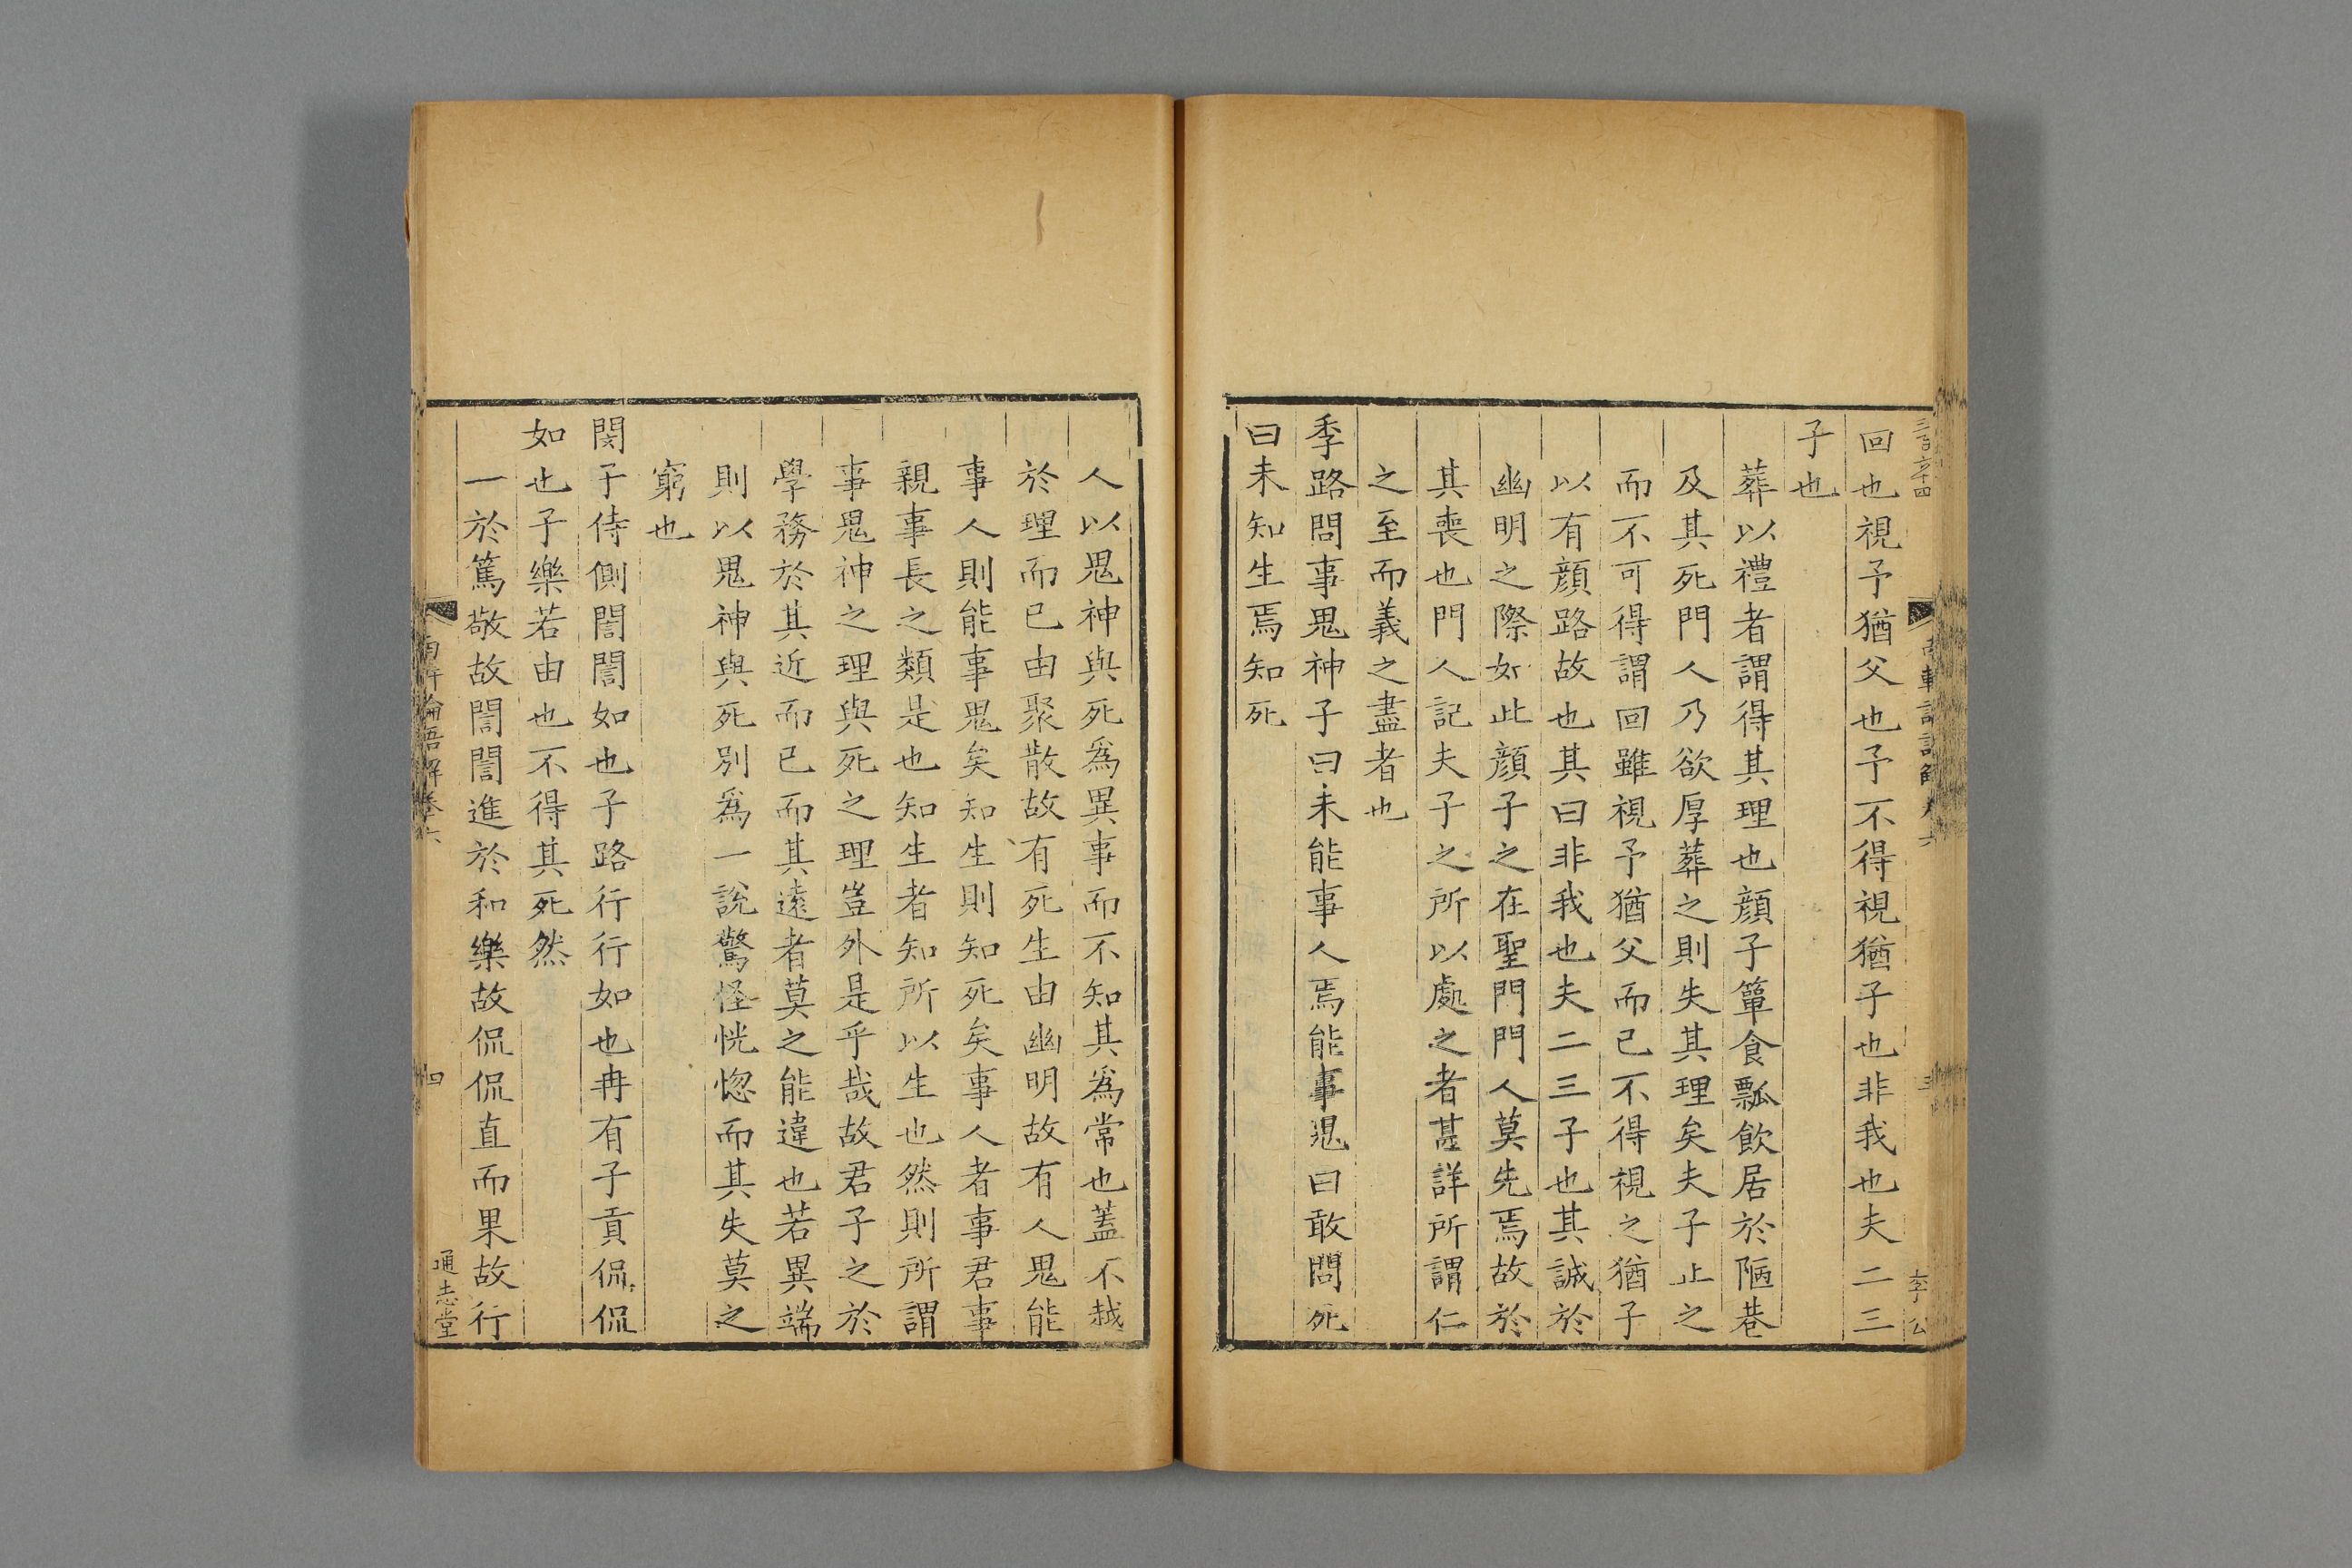 回也視予猶父也予不得視猶子也非我也夫二三
子也
葬以禮者謂得其理也顔子簞食瓢飲居於陋巷
及其死門人乃欲厚葬之則失其理矣夫子止之
而不可得謂回雖視予猶父而已不得視之猶子
以有顔路故也其曰非我也夫二三子也其誠於
幽明之際如此顔子之在聖門門人莫先焉故於
其喪也門人記夫子之所以處之者甚詳所謂仁
之至而義之盡者也
季路問事鬼神子曰未能事人焉能事鬼曰敢問死
曰未知生焉知死
人以鬼神與死爲異事而不知其爲常也蓋不越
於理而已由聚散故有死生由幽明故有人鬼能
事人則能事鬼矣知生則知死矣事人者事君事
親事長之類是也知生者知所以生也然則所謂
事鬼神之理與死之理豈外是乎哉故君子之於
學務於其近而已而其遠者莫之能違也若異端
則以鬼神與死別爲一說驚怪恍惚而其失莫之
窮也
閔子侍側誾誾如也子路行行如也冉有子貢侃侃
如也子樂若由也不得其死然
一於篤敬故誾誾進於和樂故侃侃直而果故行
南軒論語解卷六
四
通志堂